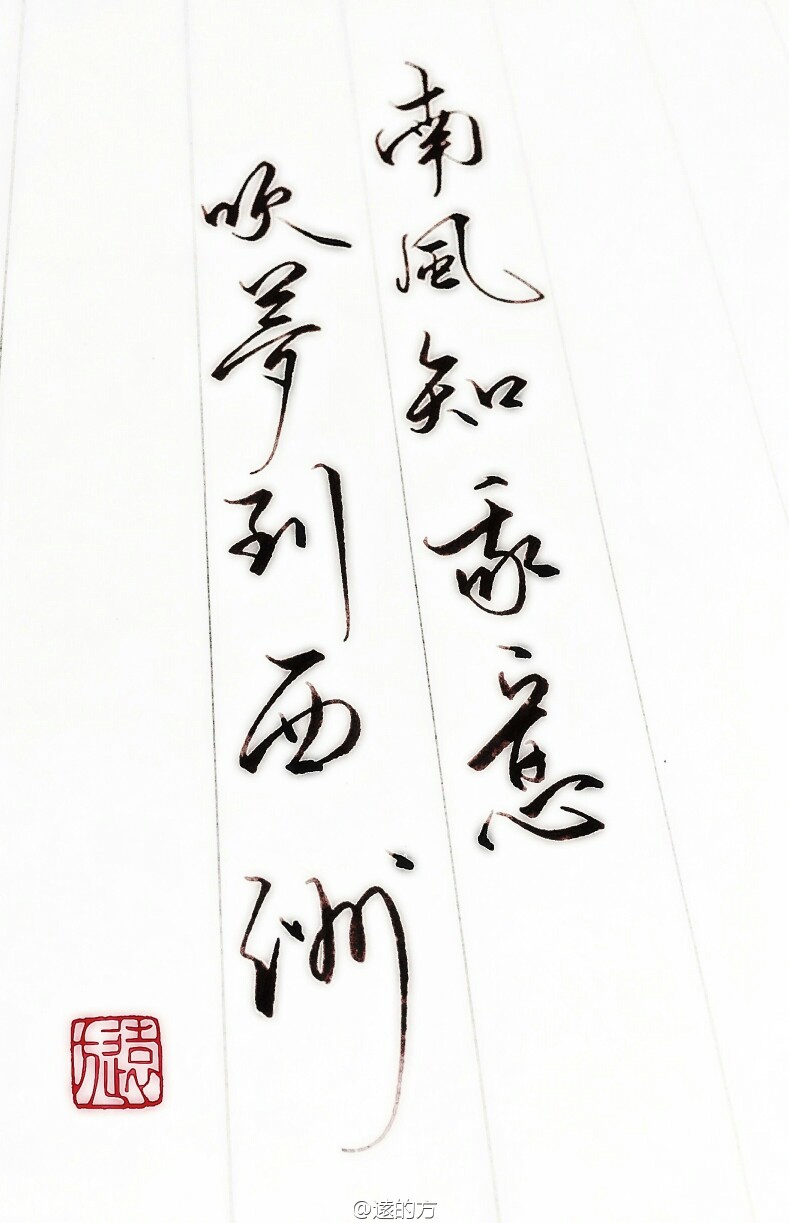 南風知我意
吹夢到西洲
遠方
@逺的方